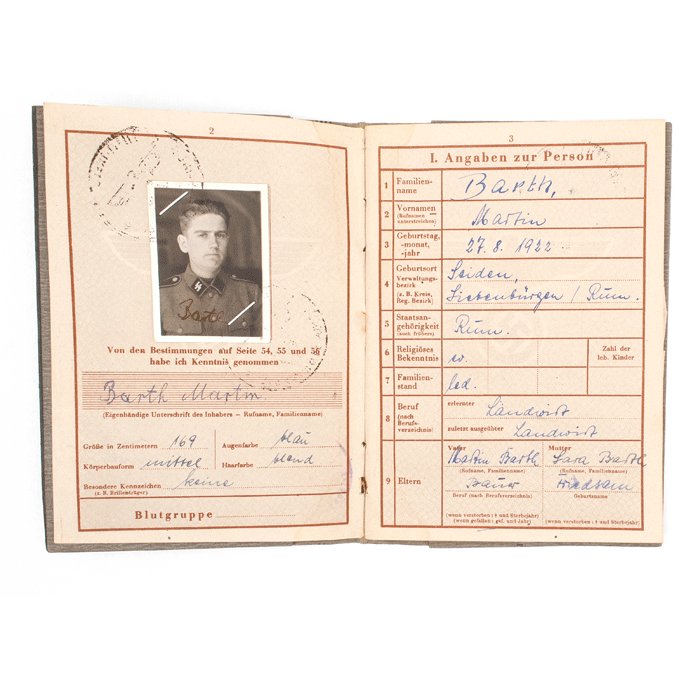 2
Barth
Von den Bestimmungen auf Seite 54, 55 und 56
habe ich Kenntnis genommen
Barth Martin
(Eigenhändige Unterschrift des Inhabers — Rufname, Familienname)
Größe in Zentimetern 169 Augenfarbe blau
Körperbauform mittel Haarfarbe blond
Besondere Kennzeichen keine
(z. B. Brillenträger)
Blutgruppe
3
I. Angaben zur Person
1 Familien-
name Barth,
2 Vornamen
(Rufnamen
unterstreichen) Martin
3 Geburtstag,
-monat,
-jahr 27.8.1922
4 Geburtsort
Verwaltungs-
bezirk
(z. B. Kreis,
Reg. Bezirk) Seiden,
Siebenbürgen / Rum.
5 Staatsan-
gehörigkeit
(auch frühere) Rum.
6 Religiöses
Bekenntnis ev.
Zahl der
leb. Kinder
7 Familien-
stand led.
8 Beruf
(nach Berufs-
verzeichnis)
erlernter Landwirt
zuletzt ausgeübter Landwirt
9 Eltern
Vater Mutter
Martin Barth Sara Barth
(Rufname, Familienname) (Rufname, Familienname)
Bauer Friedsam
Beruf (nach Berufsverzeichnis) Geburtsname
(wenn verstorben: † und Sterbejahr)
(wenn gefallen: gef. und Jahr)
(wenn verstorben: † und Sterbejahr)